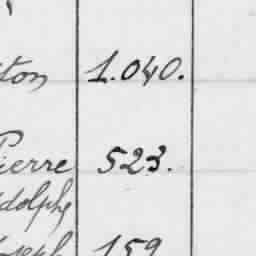 ton 1.040.
Pierre 523.
dolphe
oseph 159